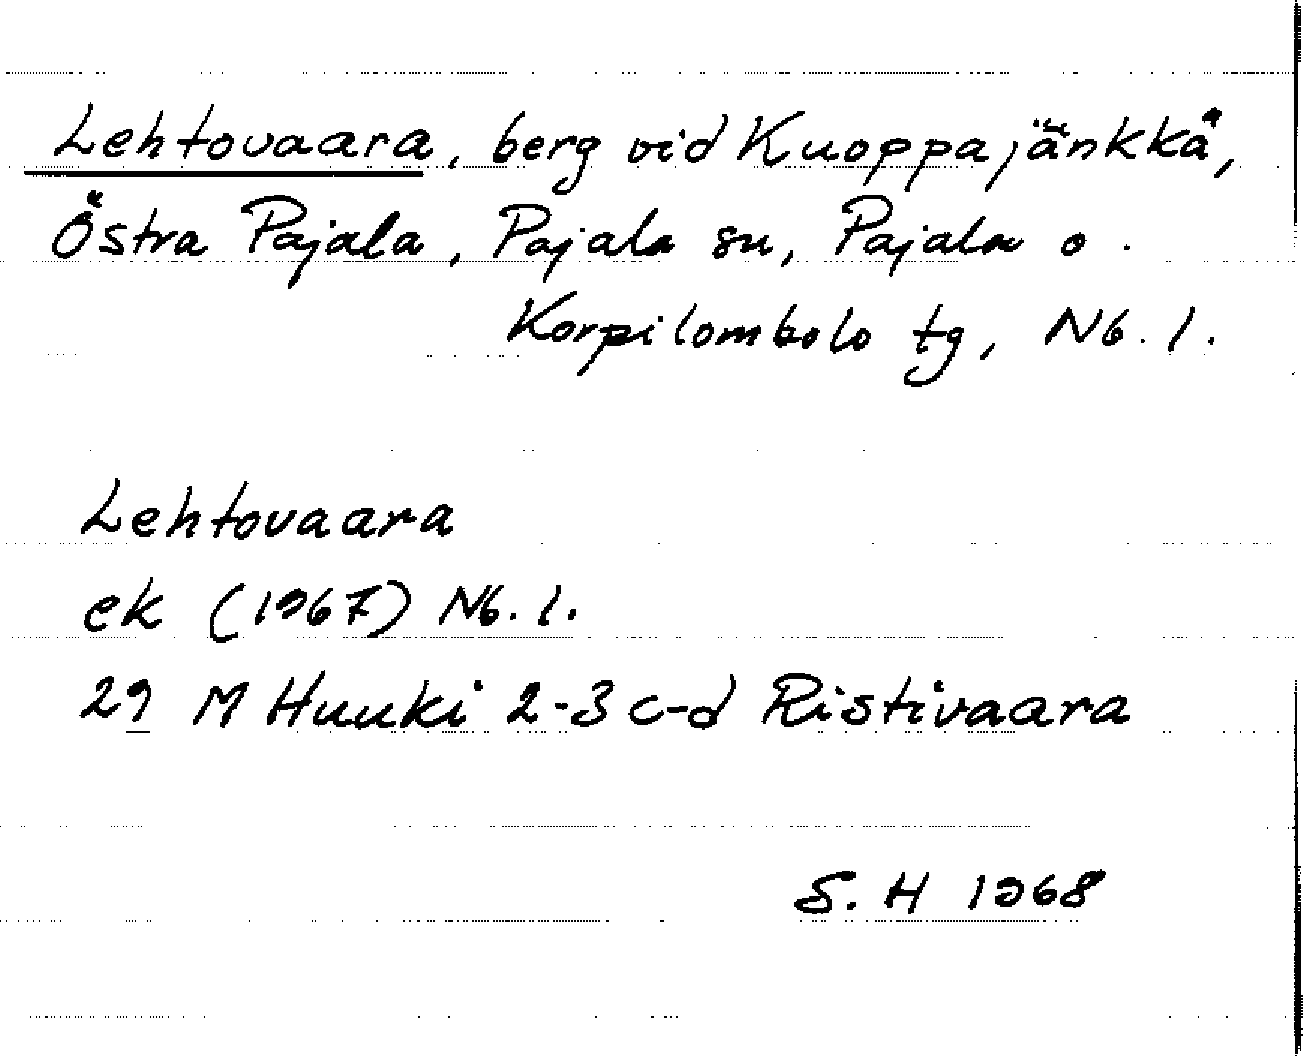 Lehtovaara, berg vid Kuoppajänkkä,
Östra Pajala, Pajala sn, Pajala o.
Korpilombolo tg, Nb. l.
Lehtovaara
ek (1967) Nb. l.
29 M Huuki 2-3 c-d Ristivaara
S. H 1968